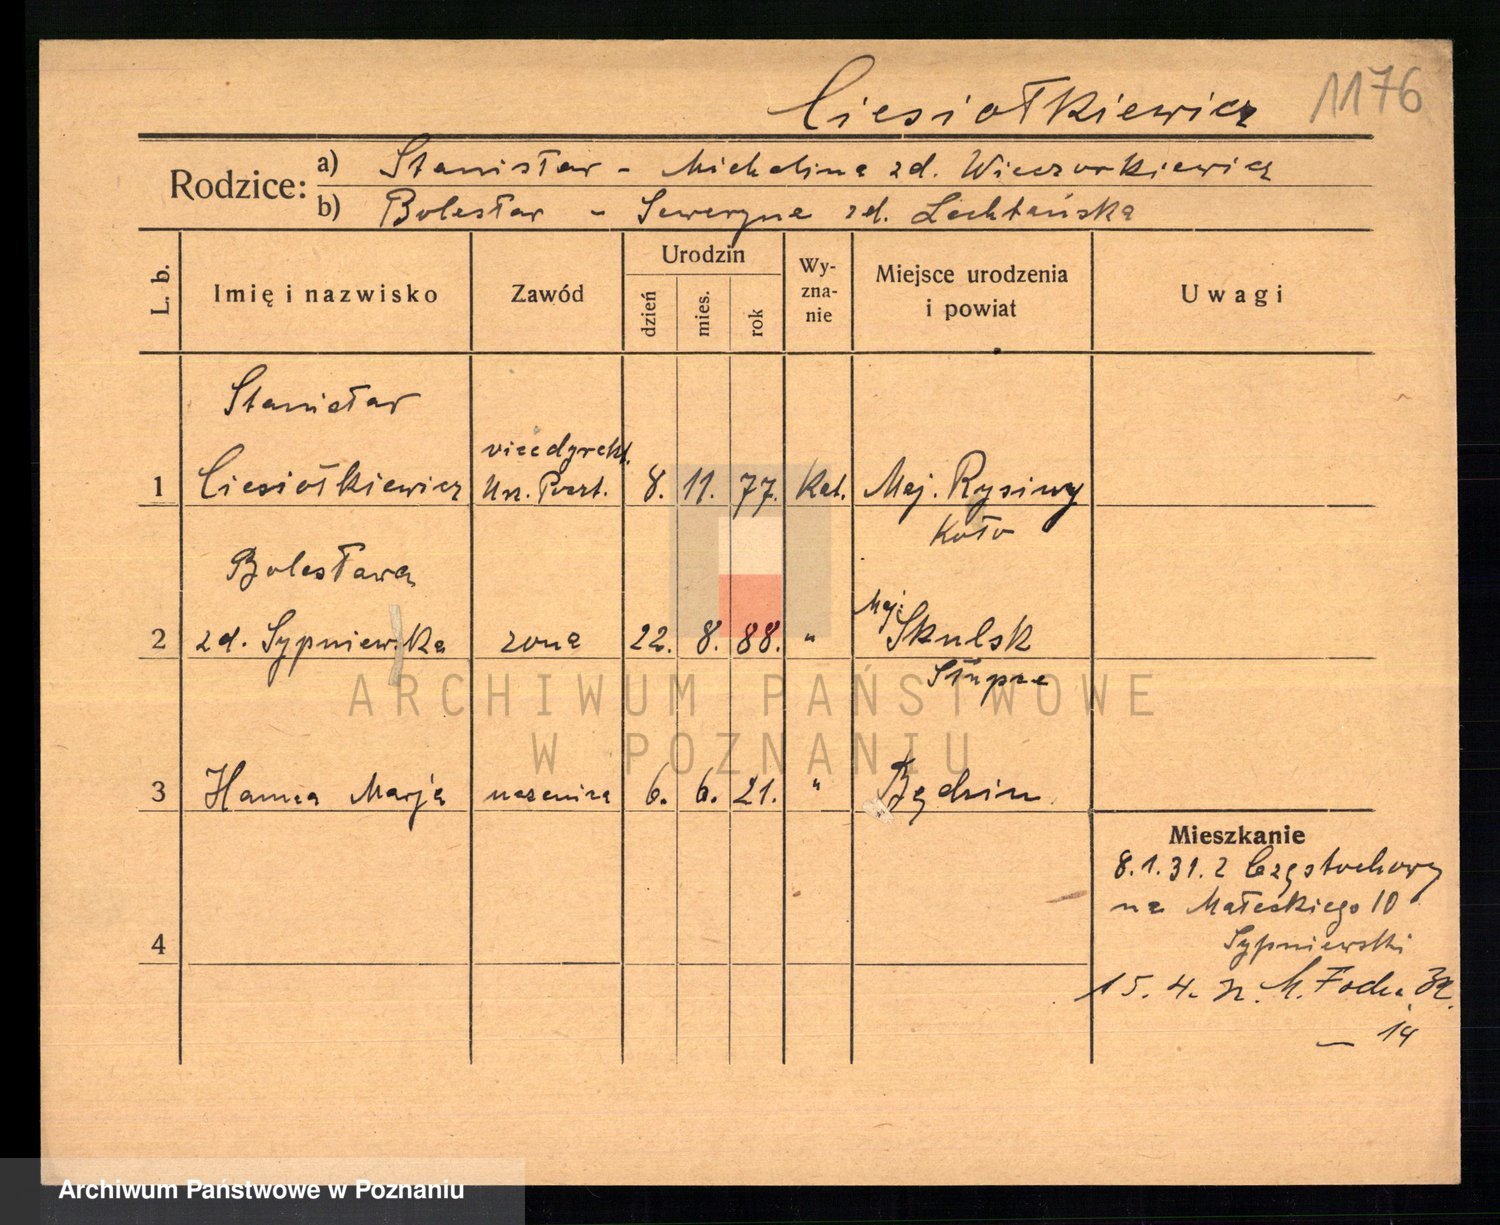 Ciesiołkiewicz 1176
Rodzice: a) Stanisław - Michalina zd. Wieczorkiewicz
b) Bolesław - Seweryna zd. Lechtańska
L. b. Imię i nazwisko Zawód Urodzin dzień mies. rok Wy-zna-nie Miejsce urodzenia i powiat Uwagi
Stanisław
vicedyrekt.
1 Ciesiołkiewicz Urz. Poczt. 8. 11. 77. Kat. Maj. Rysiny
Koło
Bolesława
Maj.
2 zd. Sypniewska żona 22. 8. 88. " Skulsk
Słupca
3 Hanna Marja uczenica 6. 6. 21. " Będzin
Mieszkanie
8.1.31. z Częstochowy
na Małeckiego 10
Sypniewski
4
15. 4. M. Focha
— 14
ARCHIWUM PAŃSTWOWE
W POZNANIU
Archiwum Państwowe w Poznaniu